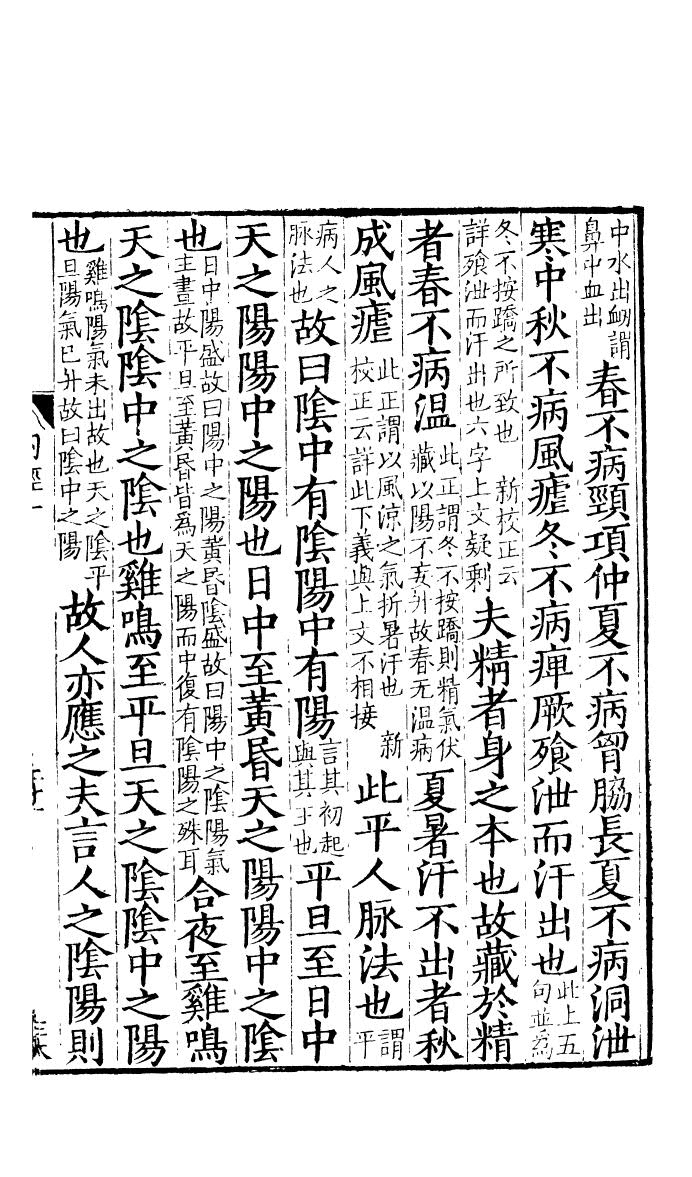 中水出衂謂鼻中血出春不病頸項仲夏不病胷脇長夏不病洞泄
寒中秋不病風瘧冬不病痺厥飱泄而汗出也此上五句並爲
冬不按蹻之所致也 新校正云詳飱泄而汗出也六字上文疑剩夫精者身之本也故藏於精
者春不病温此正謂冬不按蹻則精氣伏藏以陽不妄升故春无温病夏暑汗不出者秋
成風瘧此正謂以風涼之氣折暑汗也 新校正云詳此下義與上文不相接此平人脉法也謂平
病人之脉法也故曰陰中有陰陽中有陽言其初起與其王也平旦至日中
天之陽陽中之陽也日中至黄昏天之陽陽中之陰
也日中陽盛故曰陽中之陽黄昏陰盛故曰陽中之陰陽氣主晝故平旦至黄昏皆爲天之陽而中復有陰陽之殊耳合夜至雞鳴
天之陰陰中之陰也雞鳴至平旦天之陰陰中之陽
也雞鳴陽氣未出故也天之陰平旦陽氣已升故曰陰中之陽故人亦應之夫言人之陰陽則